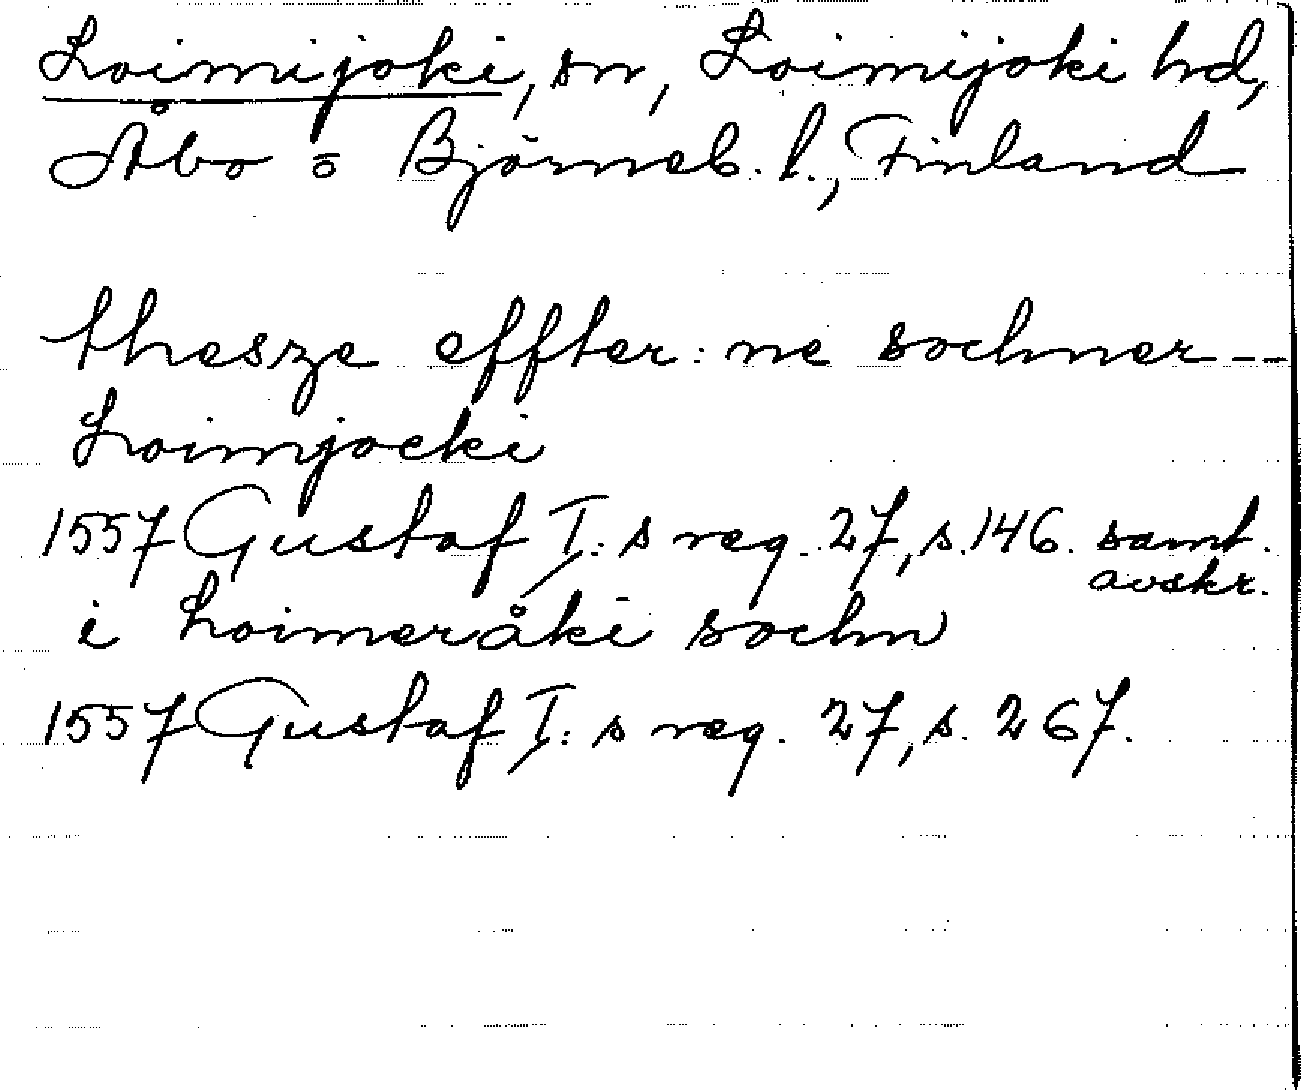 Loimijoki, sn, Loimijoki hd,
Åbo o Björneb. l., Finland
thesze effter: ne sochner --
Loimjocki
1557 Gustaf I: s reg. 27, s. 146. samt.
avskr.
i Loimeråki sochn
1557 Gustaf I: s reg. 27, s. 267.